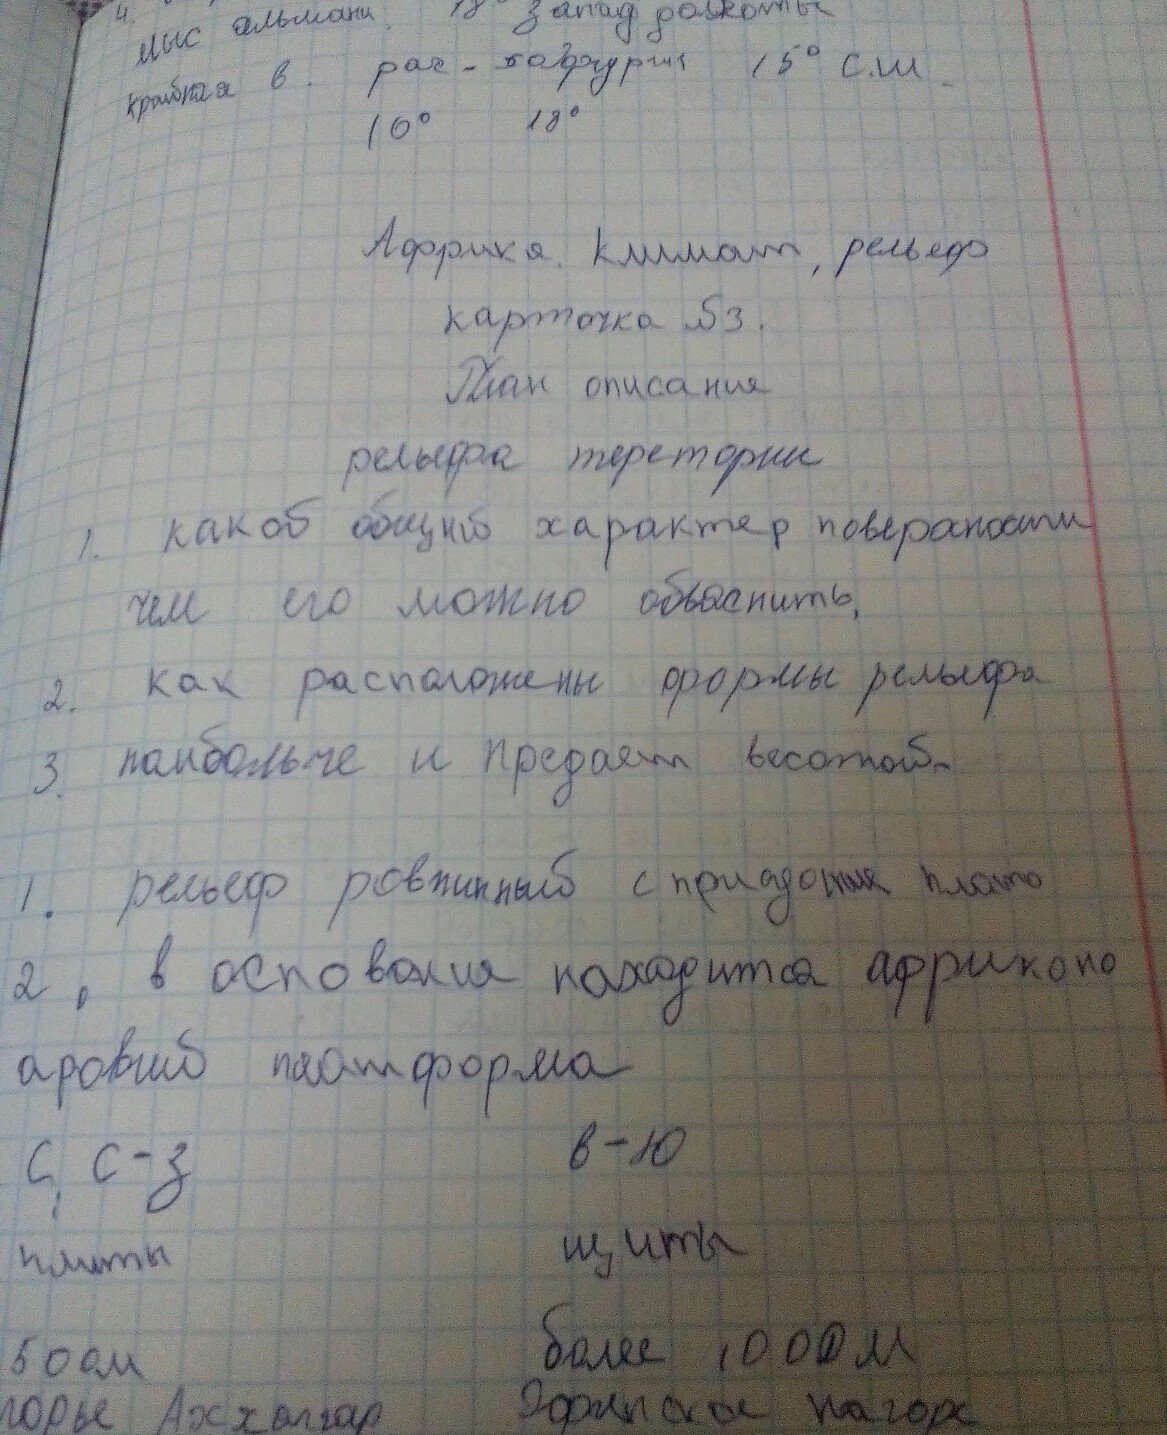 мыс альмани 18° запад долготы
крайняя в. рас - хафурин 15° с.ш.
10° 18°
Африка. климат, рельеф
карточка №3.
План описание
рельефа теретории
1. какоб общий характер поверхности
чем его можно обьяснить,
2. как расположены формы рельефа
3. наибольче и предает весотой.
1. рельеф ровнинный с плато
2, в основания находится африкано
аровий платформа
С, С-З В-Ю
плиты щиты
500м более 1000м
горье Аххалгар Эфипское нагорь